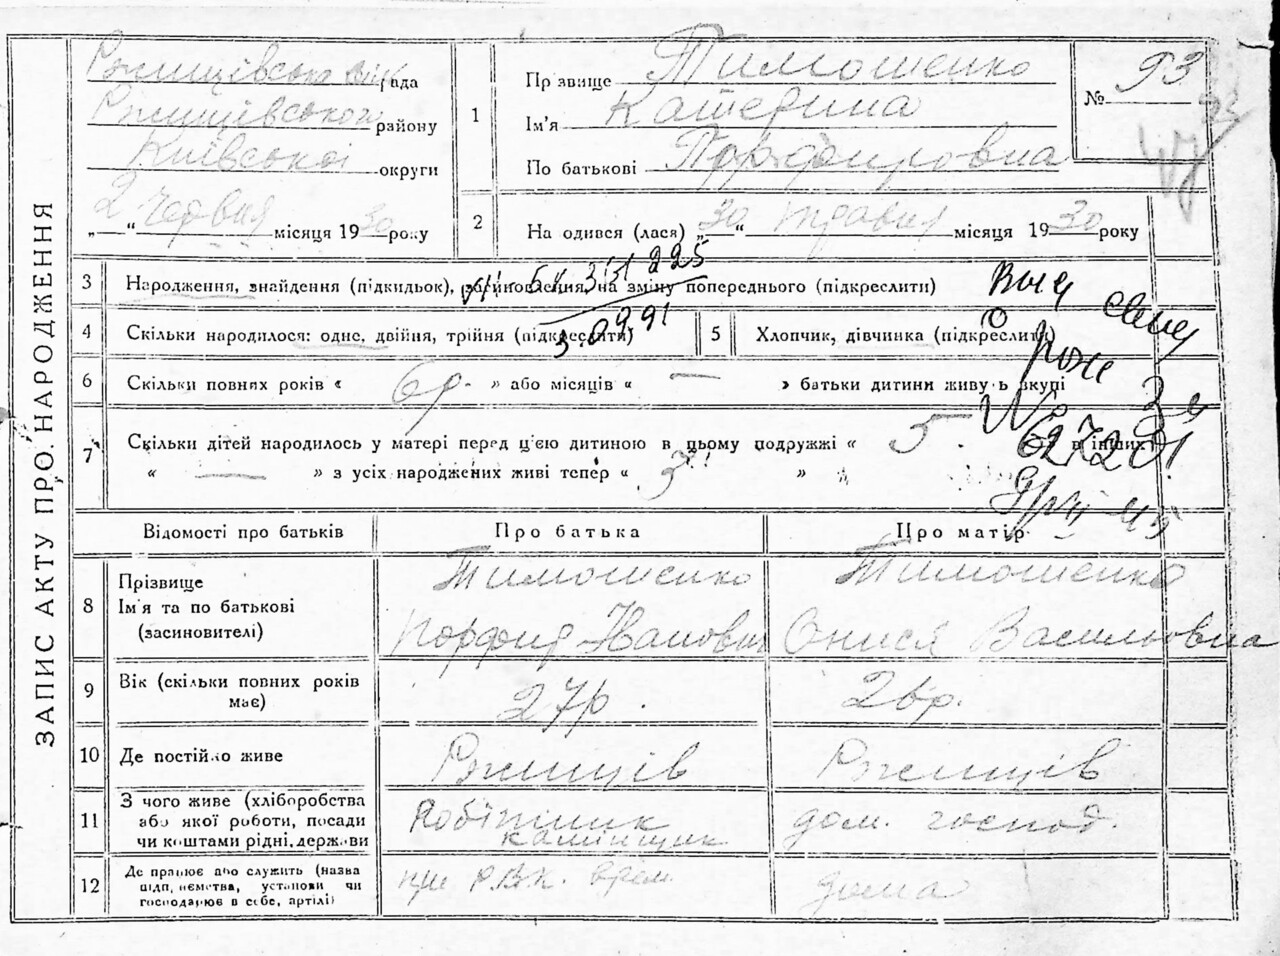 ЗАПИС АКТУ ПРО НАРОДЖЕННЯ
Ржищівська рада
Ржищівського району
Київської округи
„ 2 “ Червня місяця 1930 року
1
Прізвище Тимошенко
Ім'я Катерина
По батькові Порфоировна
№ 93
2
На одився (лася) „ 30 “ травня місяця 1930 року
3 Народження, знайдення (підкидьок), на зміну попереднього (підкреслити)
4 Скільки народилося: одне, двійня, трійня (підкреслити)
5 Хлопчик, дівчинка (підкреслити)
6 Скільки повних років « 6р. » або місяців « — » батьки дитини живуь вкупі
7 Скільки дітей народилось у матері перед цією дитиною в цьому подружжі « 5 в інших
« — » з усіх народжених живі тепер « 3 »
Відомості про батьків
Про батька
Про матір
8 Прізвище
Ім'я та по батькові
(засиновителі)
Тимошенко
Порфир Іванович
Тимошенко
Онися Васильовна
9 Вік (скільки повних років має)
27р.
26р.
10 Де постійно живе
Ржищів
Ржищів
11 З чого живе (хліборобства
або якої роботи, посади
чи коштами рідні, держави
Робітник
каминщик
дом. господ.
12 Де працює або служить (назва
підп, иємства, установи чи
господарює в себе, артілі)
при Р.В.К. врем.
дома